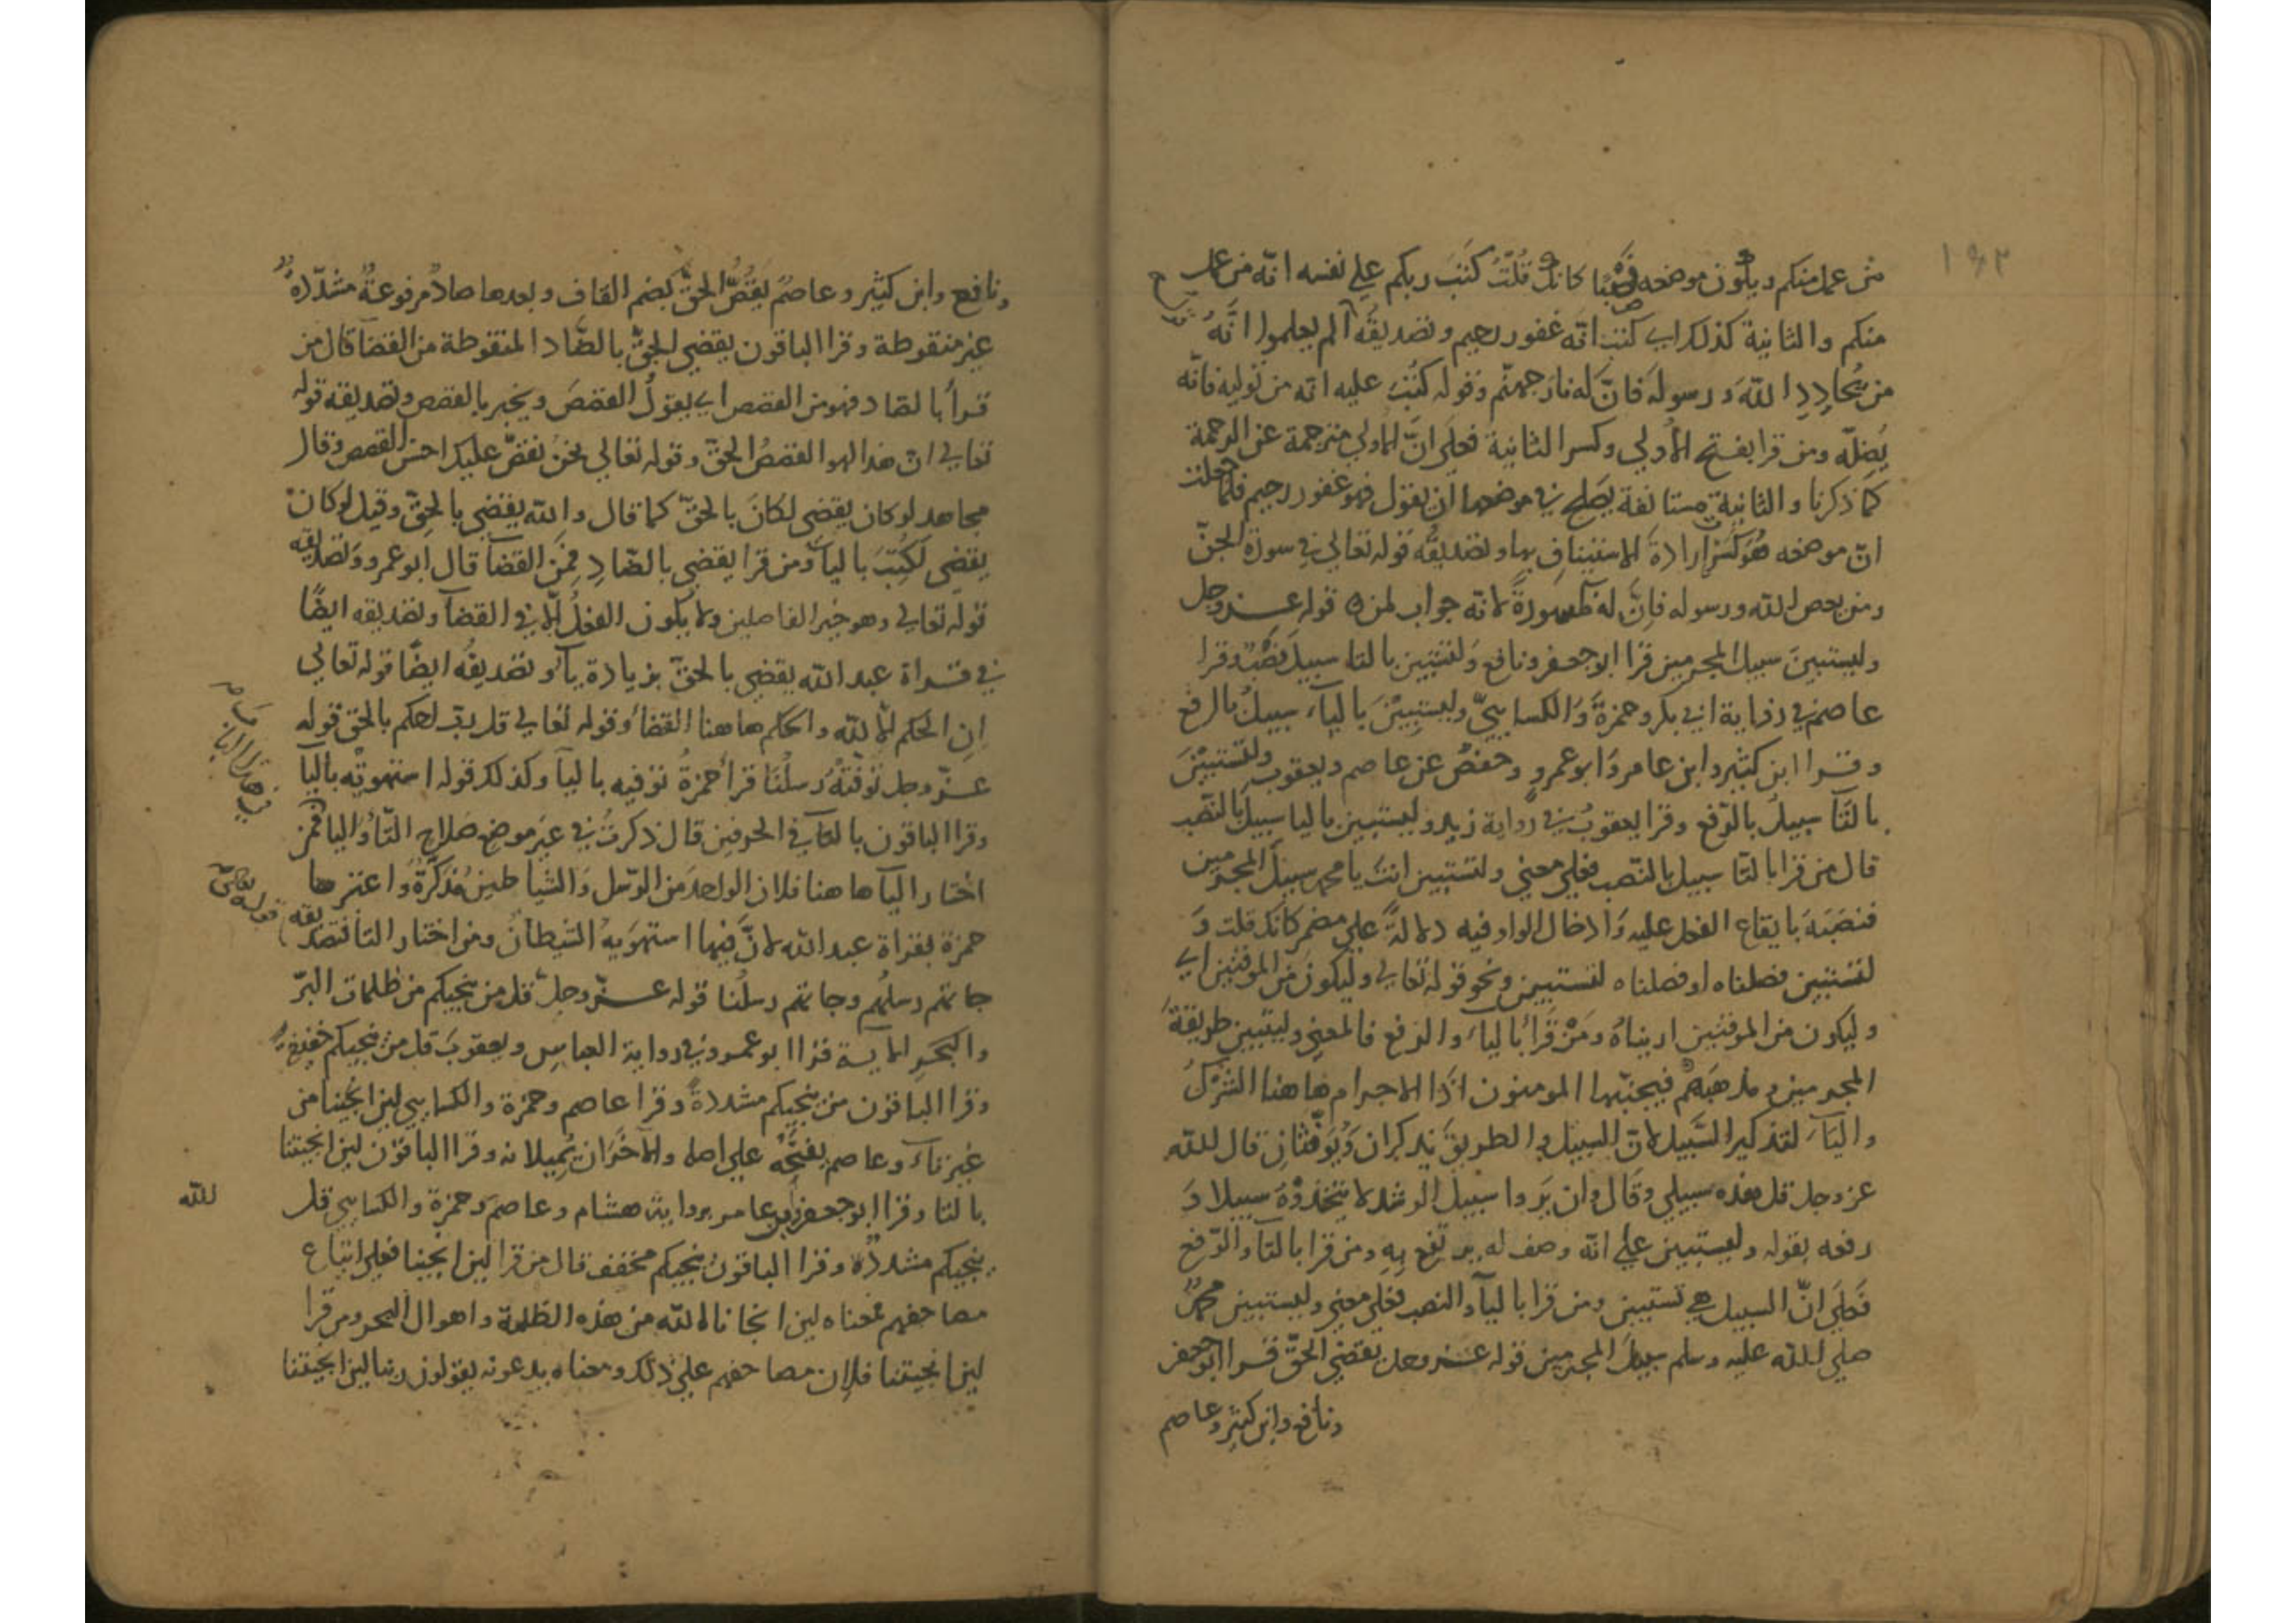 ١٩٢
من عمل منكم ويكون موضعه نصبا كانك قلت كتب ربكم علي نفسه انه من عمل
منكم والثانية كذلك اي كتب انه غفور رحيم وتصديقه الم يعلموا انه
من يحادد الله ورسوله فان له نار جهنم وقوله كتب عليه انه من توليه فانه
يضله ومن قرا بفتح الأولي وكسر الثانية فعلي ان الأولي مترجمة عن الرحمة
كما ذكرنا والثانية مستانفة يصلح في موضعها ان يقول فهو غفور رحيم فلما حلت
ان موضعه هو كسر ارادة الاستيناف بها وتصديقه قوله تعالي في سورة الجن
ومن يعص الله ورسوله فان له مكسورة لانه جواب لمن ٥ قوله عز وجل
وليستبين سبيل المجرمين قرا ابو جعفر ونافع ولتستبين بالتا سبيل نصب وقرا
عاصم في رواية ابي بكر وحمزة والكسايي وليستبين بالياء سبيل بالرفع
وقرا ابن كثير وابن عامر وابو عمرو وحفص عن عاصم ويعقوب ولتستبين
بالتا سبيل بالرفع وقرا يعقوب في رواية زيد وليستبين باليا سبيل بالنصب
قال من قرا بالتا سبيل بالنصب فعلي معني ولتستبين انت يا محمد سبيل المجرمين
فنصبه بايقاع الفعل عليه وادخال الواو فيه دلالة علي مضمر كانك قلت و
لتستبين فصلناه او فصلناه لتستبين ونحو قوله تعالي وليكون من الموقنين اي
وليكون من الموقنين اريناه ومن قرا بالياء والرفع فالمعني وليتبين طريقة
المجرمين ومذهبهم فيجنبها المومنون اذا الاجرام هاهنا الشرك
والياء لتذكير السبيل لان السبيل والطريق يذكران ويؤنثان قال الله
عز وجل قل هذه سبيلي وقال وان يروا سبيل الرشد لا يتخذوه سبيلا و
رفعه بقوله وليستبين علي انه وصف له يرتفع به ومن قرا بالتا والرفع
فعلي ان السبيل هي تستبين ومن قرا باليا والنصب فعلي معني وليستبين محمد
صلي الله عليه وسلم سبيل المجرمين قوله عز وجل يقضي الحق قرا ابو جعفر
ونافع وابن كثير وعاصم
ونافع وابن كثير وعاصم يقص الحق بضم القاف وبعدها صاد مرفوعة مشددة
غير منقوطة وقرا الباقون يقضي الحق بالضاد المنقوطة من القضا قال من
قرأ بالصاد فهو من القصص اي يقول القصص ويخبر بالقصص وتصديقه قوله
تعالي ان هذا لهو القصص الحق وقوله تعالي نحن نقص عليك احسن القصص وقال
مجاهد لو كان يقضي لكان بالحق كما قال والله يقضي بالحق وقيل لو كان
يقضي لكتب باليا ومن قرا يقضي بالضاد فمن القضا قال ابو عمرو وتصديقه
قوله تعالي وهو خير الفاصلين ولا يكون الفصل الا في القضا وتصديقه ايضا
في قراة عبد الله يقضي بالحق بزيادة باء وتصديقه ايضا قوله تعالي
ان الحكم الا لله والحكم هاهنا القضاء وقوله تعالي قل رب احكم بالحق قوله
عز وجل توفته رسلنا قرأ حمزة توفيه باليا وكذلك قوله استهوته باليا
وقرا الباقون بالتا في الحرفين قال ذكرت في غير موضع صلاح التا واليا فمن
اختار اليا هاهنا فلان الواحد من الرسل والشياطين مذكر واعتبرها
حمزة بقراة عبد الله لان فيها استهويه الشيطان ومن اختار التا فتصديقه
قوله تعالي
جاتهم رسلهم وجاتهم رسلنا قوله عز وجل قل من ينجيكم من ظلمات البر
والبحر الاية قرا ابو عمرو في رواية العباس ويعقوب قل من ينجيكم خفيفة
وقرا الباقون من ينجيكم مشددة وقرا عاصم وحمزة والكسايي لين انجينا من
غير تاء وعاصم يفتحه علي اصله والآخران يميلانه وقرا الباقون لين انجيتنا
بالتا وقرا ابو جعفر وابن عامر برواية هشام وعاصم وحمزة والكسايي قل
الله
ينجيكم مشددة وقرا الباقون ينجيكم مخفف قال من قرا لين انجينا فعلي اتباع
مصاحفهم فمعناه لين انجانا الله من هذه الظلمة واهوال البحر ومن قرا
لين انجيتنا فلان مصاحفهم علي ذلك ومعناه يدعونه يقولون ربنا لين انجيتنا